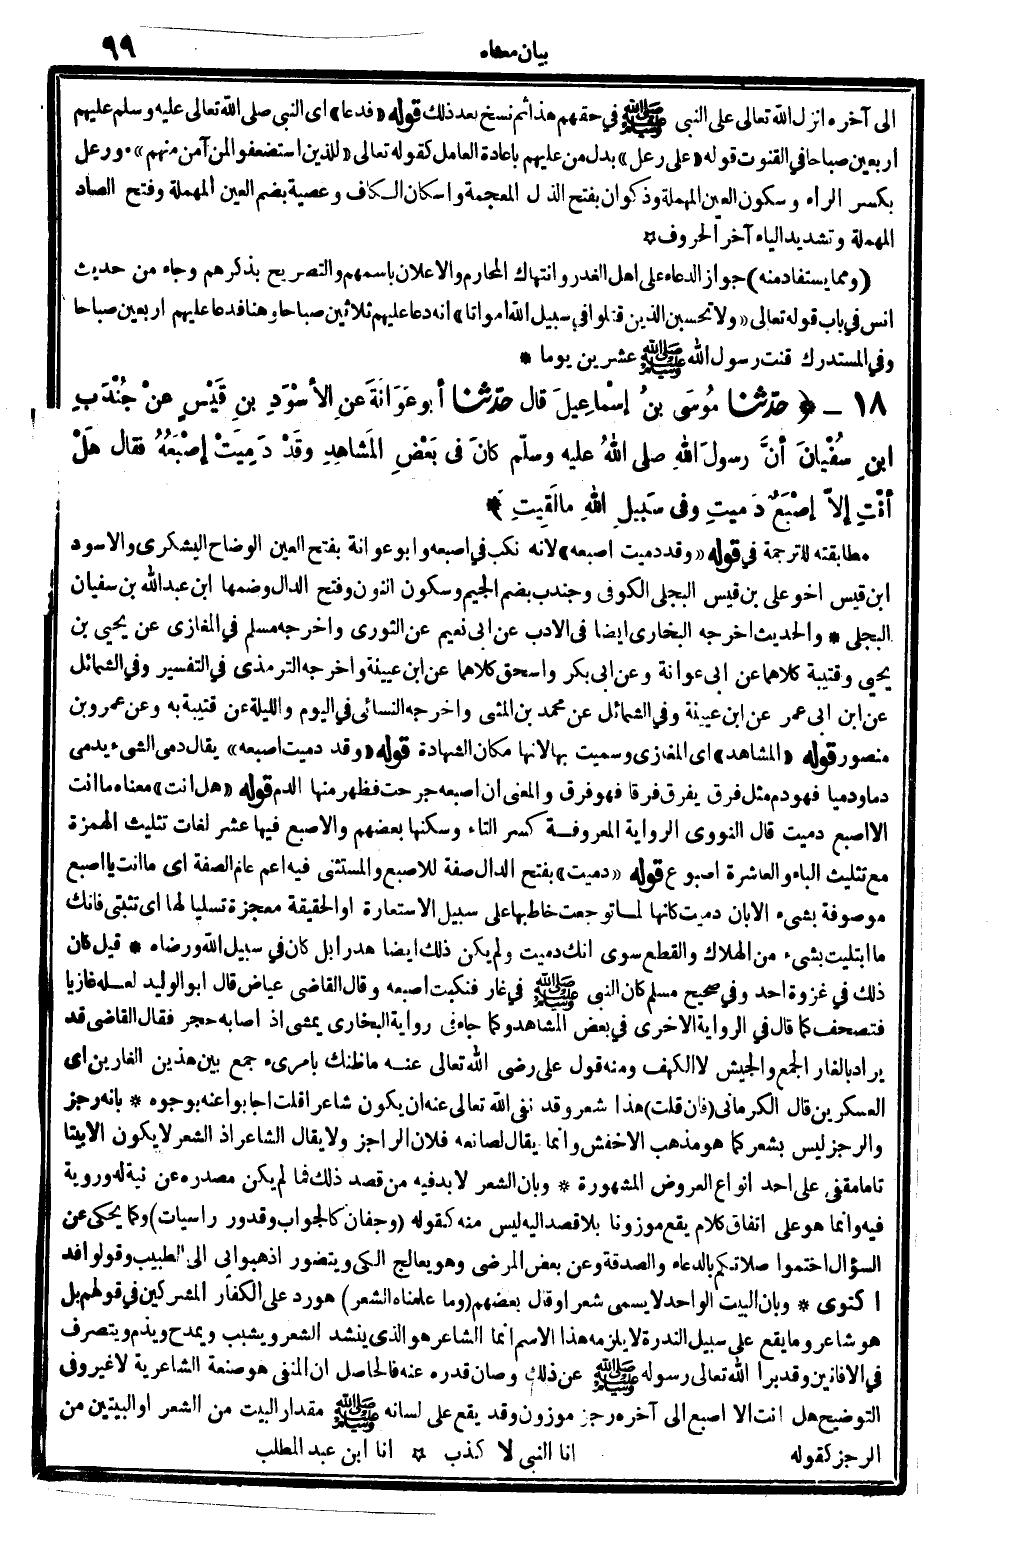 بيان معناه
٩٩
الى آخره انزل الله تعالى على النبى ﷺ في حقهم هذا ثم نسخ بعد ذلك قوله «فدعا» اى النبى صلى الله تعالى عليه وسلم عليهم
اربعين صباحا في القنوت قوله «على رعل» بدل من عليهم باعادة العامل كقوله تعالى «للذين استضعفوا لمن آمن منهم» ورعل
بكسر الراء وسكون العين المهملة وذكوان بفتح الذال المعجمة واسكان الكاف وعصية بضم العين المهملة وفتح الصاد
المهملة وتشديد الياء آخر الحروف ☆
(ومما يستفاد منه) جواز الدعاء على اهل الغدر وانتهاك المحارم والاعلان باسمهم والتصريح بذكرهم وجاء من حديث
انس في باب قوله تعالى «ولا تحسبن الذين قتلوا في سبيل الله امواتا» انه دعا عليهم ثلاثين صباحا وهنا فدعا عليهم اربعين صباحا
وفي المستدرك قنت رسول الله ﷺ عشرين يوما *
١٨ ـ ﴿ حَدَّثَنَا مُوسَى بنُ إسْمَاعِيلَ قال حَدَّثَنَا أبو عَوَانَةَ عنِ الأسْوَدِ بنِ قَيْسٍ عنْ جُنْدَبِ
ابنِ سُفْيانَ أنَّ رسولَ اللهِ صلى اللهُ عليه وسلّم كانَ فى بَعْضِ المَشاهِدِ وقَدْ دَمِيَتْ إصْبَعُهُ فقال هَلْ
أنْتِ إلاَّ إصْبَعٌ دَمِيتِ وفى سَبِيلِ اللهِ ما لَقِيتِ ﴾
مطابقته للترجمة في قوله «وقد دميت اصبعه» لانه نكب في اصبعه وابو عوانة بفتح العين الوضاح اليشكرى والاسود
ابن قيس اخو على بن قيس البجلى الكوفى وجندب بضم الجيم وسكون النون وفتح الدال وضمها ابن عبد الله بن سفيان
البجلى * والحديث اخرجه البخارى ايضا فى الادب عن ابى نعيم عن الثورى واخرجه مسلم في المغازى عن يحيى بن
يحيى وقتيبة كلاهما عن ابى عوانة وعن ابى بكر واسحق كلاهما عن ابن عيينة واخرجه الترمذى في التفسير وفي الشمائل
عن ابن ابى عمر عن ابن عيينة وفي الشمائل عن محمد بن المثنى واخرجه النسائى في اليوم والليلة عن قتيبة به وعن عمرو بن
منصور قوله «المشاهد» اى المغازى وسميت بها لانها مكان الشهادة قوله «وقد دميت اصبعه» يقال دمى الشىء يدمى
دما ودميا فهو دم مثل فرق يفرق فرقا فهو فرق والمعنى ان اصبعه جرحت فظهر منها الدم قوله «هل انت» معناه ما انت
الا اصبع دميت قال النووى الرواية المعروفة كسر التاء وسكنها بعضهم والاصبع فيها عشر لغات تثليث الهمزة
مع تثليث الباء والعاشرة اصبوع قوله «دميت» بفتح الدال صفة للاصبع والمستثنى فيه اعم عام الصفة اى ما انت يا اصبع
موصوفة بشىء الا بان دميت كانها لما توجعت خاطبها على سبيل الاستعارة او الحقيقة معجزة تسليا لها اى تثبتى فانك
ما ابتليت بشىء من الهلاك والقطع سوى انك دميت ولم يكن ذلك ايضا هدرا بل كان في سبيل الله ورضاه * قيل كان
ذلك في غزوة احد وفي صحيح مسلم كان النبى ﷺ في غار فنكبت اصبعه وقال القاضى عياض قال ابو الوليد لعله غازيا
فتصحف كما قال في الرواية الاخرى في بعض المشاهد وكما جاء فى رواية البخارى يمشى اذ اصابه حجر فقال القاضى قد
يراد بالغار الجمع والجيش لا الكهف ومنه قول على رضى الله تعالى عنه ما ظنك بامرىء جمع بين هذين الغارين اى
العسكرين قال الكرمانى (فان قلت) هذا شعر وقد نفى الله تعالى عنه ان يكون شاعرا قلت اجابوا عنه بوجوه * بانه رجز
والرجز ليس بشعر كما هو مذهب الاخفش وانما يقال لصانعه فلان الراجز ولا يقال الشاعر اذ الشعر لا يكون الا بيتا
تاما مقفى على احد انواع العروض المشهورة * وبان الشعر لا بد فيه من قصد ذلك فما لم يكن مصدره عن نية له وروية
فيه وانما هو على اتفاق كلام يقع موزونا بلا قصد اليه ليس منه كقوله (وجفان كالجواب وقدور راسيات) وكما يحكى عن
السؤال اختموا صلاتكم بالدعاء والصدقة وعن بعض المرضى وهو يعالج الكى ويتضور اذهبوا بى الى الطبيب وقولوا قد
اكتوى * وبان البيت الواحد لا يسمى شعرا وقال بعضهم (وما علمناه الشعر) هو رد على الكفار المشركين في قولهم بل
هو شاعر وما يقع على سبيل الندرة لا يلزمه هذا الاسم انما الشاعر هو الذى ينشد الشعر ويشبب ويمدح ويذم ويتصرف
في الافانين وقد برأ الله تعالى رسوله ﷺ عن ذلك وصان قدره عنه فالحاصل ان المنفى هو صنعة الشاعرية لا غير وفى
التوضيح هل انت الا اصبع الى آخره رجز موزون وقد يقع على لسانه ﷺ مقدار البيت من الشعر او البيتين من
الرجز كقوله انا النبى لا كذب ☆ انا ابن عبد المطلب